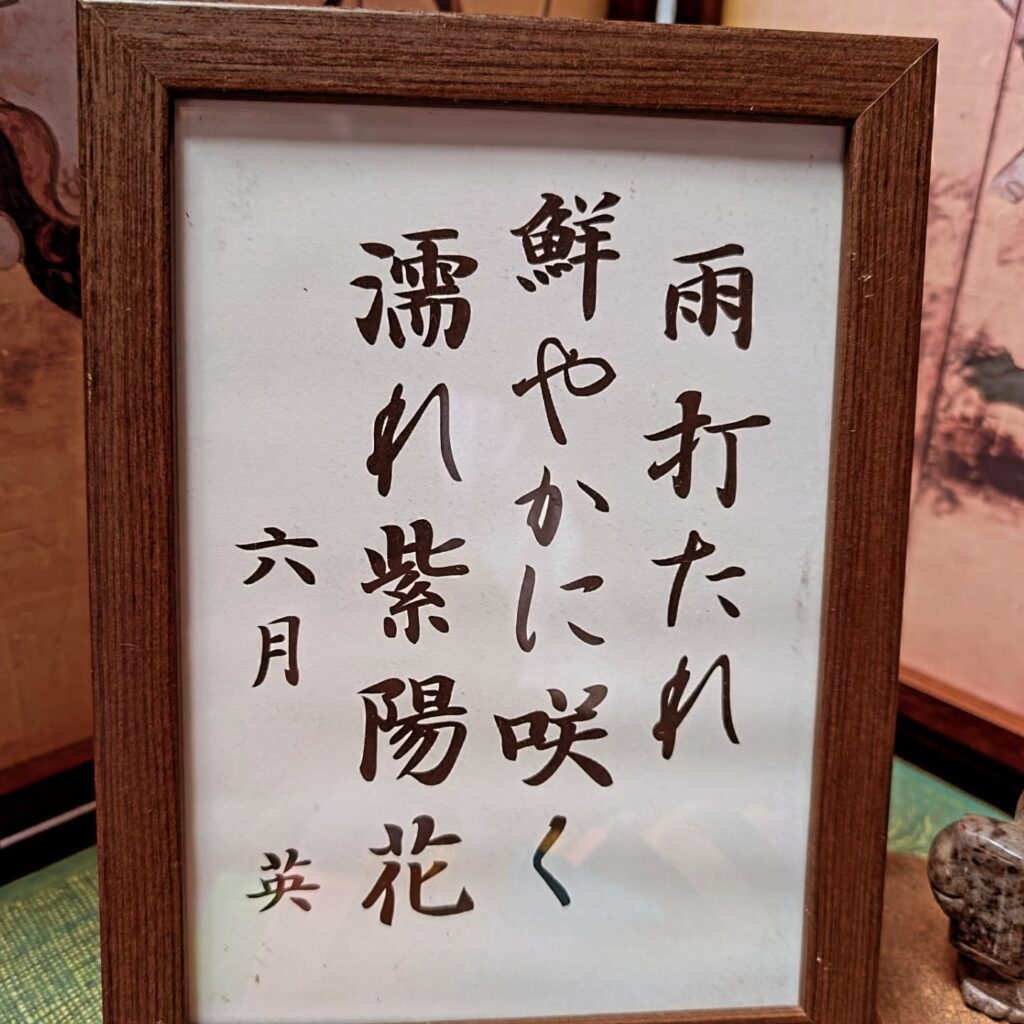 雨打たれ
鮮やかに咲く
濡れ紫陽花
六月 英